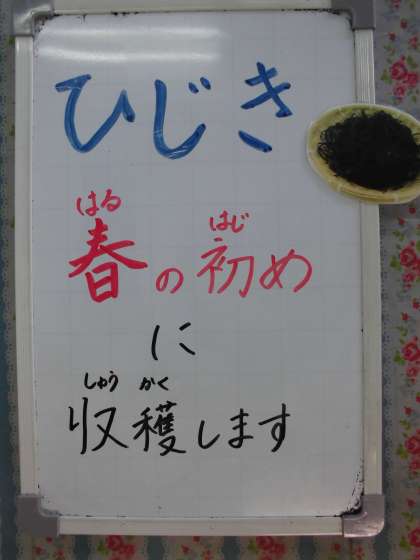 ひじき
はる はじ
春の初め
に
しゅう かく
収穫します